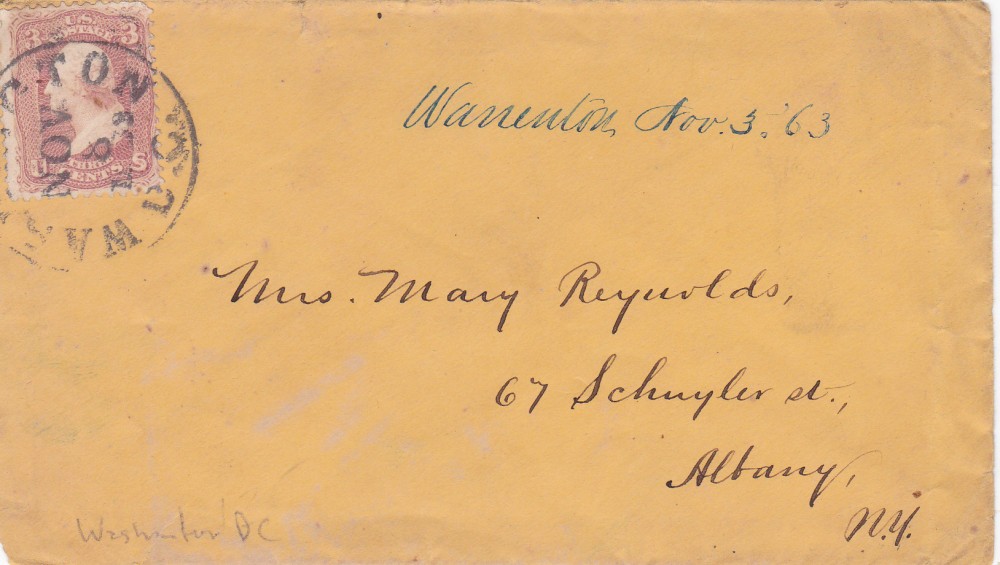 3 U.S. 3
POSTAGE
U THREE CENTS S
WASHINGTON D.C.
NOV
Warrenton, Nov. 3. '63
Mrs. Mary Reynolds,
67 Schuyler st.,
Albany,
N.Y.
Washington DC